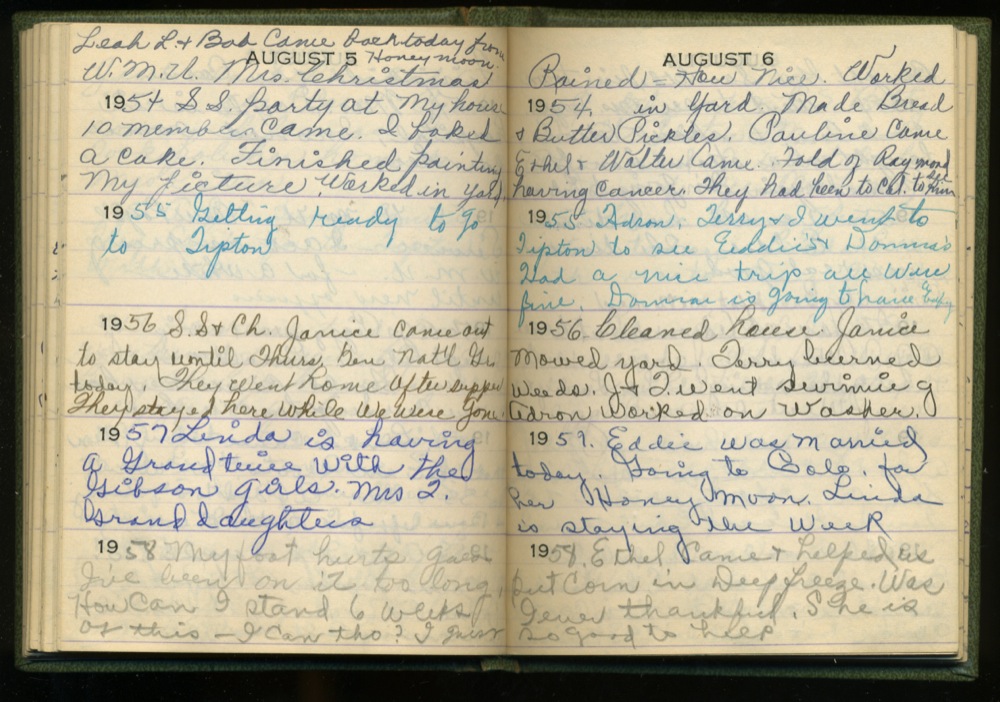 Leah L. & Bob Came back today from
AUGUST 5 Honeymoon.
W.M.U. Mrs. Christmas
1954 S.S. party at My house
10 members Came. I baked
a cake. Finished painting
My picture. Worked in yard.
1955 Getting ready to go
to Tipton
1956 S.S & Ch. Janice came out
to stay until Thurs. Nat'l
today. They went home after supper
They stayed here while we were gone.
1957 Linda is having
a Grand time with the
Gibson girls. Mrs
Grand daughters
1958 My foot hurts
I've been on it too long.
How Can I stand 6 weeks
of this — I can tho? I guess
AUGUST 6
Rained = How Nice. Worked
1954. in Yard. Made Bread
& Butter Pickles. Pauline Came
Ethel & Walter Came. Told of Raymond
having cancer. They had been to to see him
1955 Adron, Terry & I went to
Tipton to see Eddie's & Donna's
Had a nice trip all were
fine. Donna is going to have Baby
1956. Cleaned house. Janice
Mowed yard. Terry burned
weeds. J & T. went swimming
Adron Worked on Washer.
1957. Eddie was married
today. Going to Colo. for
her Honey Moon. Linda
is staying the Week
1958. Ethel Came & helped us
put Corn in Deepfreeze. Was
I ever thankful. She is
so good to help